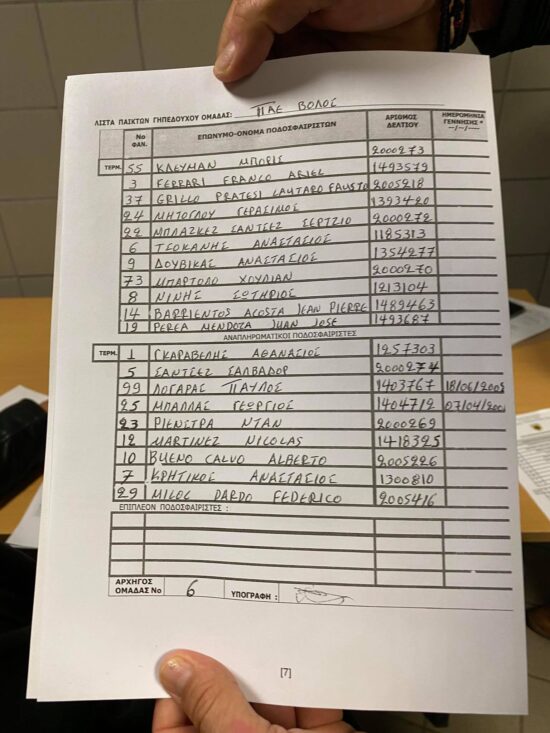 ΛΙΣΤΑ ΠΑΙΚΤΩΝ ΓΗΠΕΔΟΥΧΟΥ ΟΜΑΔΑΣ: ΠΑΕ ΒΟΛΟΣ
Νο ΦΑΝ. ΕΠΩΝΥΜΟ-ΟΝΟΜΑ ΠΟΔΟΣΦΑΙΡΙΣΤΩΝ ΑΡΙΘΜΟΣ ΔΕΛΤΙΟΥ ΗΜΕΡΟΜΗΝΙΑ ΓΕΝΝΗΣΗΣ * --/--/----
ΤΕΡΜ. 55 ΚΛΕΥΜΑΝ ΜΠΟΡΙΣ 2000273
3 FERRARI FRANCO ARIEL 1493579
37 GRILLO PRATESI LAUTARO FAUSTO 2005218
24 ΜΗΤΟΓΛΟΥ ΓΕΡΑΣΙΜΟΣ 1393420
22 ΜΠΛΑΖΚΕΖ ΣΑΝΤΣΕΖ ΣΕΡΤΖΙΟ 2000272
6 ΤΣΟΚΑΝΗΣ ΑΝΑΣΤΑΣΙΟΣ 1185313
9 ΔΟΥΒΙΚΑΣ ΑΝΑΣΤΑΣΙΟΣ 1354277
73 ΜΠΑΡΤΟΛΟ ΧΟΥΛΙΑΝ 2000270
8 ΝΙΝΗΣ ΣΩΤΗΡΙΟΣ 1213104
14 BARRIENTOS ACOSTA JEAN PIERRE 1489463
19 PEREA MENDOZA JUAN JOSE 1493687
ΑΝΑΠΛΗΡΩΜΑΤΙΚΟΙ ΠΟΔΟΣΦΑΙΡΙΣΤΕΣ
ΤΕΡΜ. 1 ΓΚΑΡΑΒΕΛΗΣ ΑΘΑΝΑΣΙΟΣ 1257303
5 ΣΑΝΤΣΕΖ ΣΑΛΒΑΔΟΡ 2000274
99 ΛΟΓΑΡΑΣ ΠΑΥΛΟΣ 1403767 18/06/200
25 ΜΠΑΛΛΑΣ ΓΕΩΡΓΙΟΣ 1404712 07/04/200
23 ΡΙΕΝΣΤΡΑ ΝΤΑΝ 2000269
12 MARTINEZ NICOLAS 1418325
10 BUENO CALVO ALBERTO 2005226
7 ΚΡΗΤΙΚΟΣ ΑΝΑΣΤΑΣΙΟΣ 1300810
29 MILOC DARDO FEDERICO 2005416
ΕΠΙΠΛΕΟΝ ΠΟΔΟΣΦΑΙΡΙΣΤΕΣ :
ΑΡΧΗΓΟΣ ΟΜΑΔΑΣ Νο 6 ΥΠΟΓΡΑΦΗ :
[7]